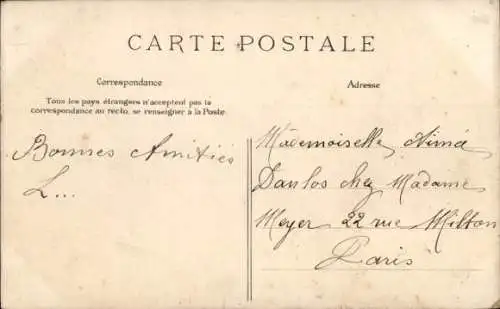 CARTE POSTALE
Correspondance
Tous les pays étrangers n'acceptent pas la
correspondance au recto, se renseigner à la Poste.
Adresse
Bonnes Amitiés
L...
Mademoiselle Aimé
Danlos chez Madame
Meyer 22 rue Milton
Paris